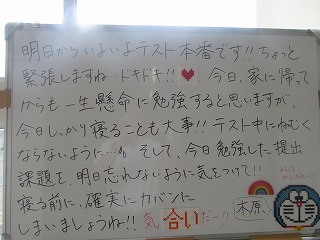 明日からいよいよテスト本番です!!ちょっと
緊張しますね…ドキドキ!!❤ 今日、家に帰って
からも一生懸命に勉強すると思いますが、
今日しっかり寝ることも大事!!テスト中にねむく
ならないように…。そして、今日勉強した提出
課題を、明日忘れないように気をつけて!!
寝る前に、確実にカバンに
しまいましょうね!!気合いだー!!
みんな、がんばれ
木原